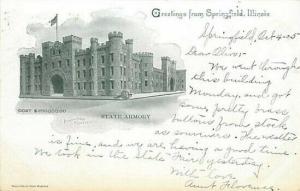 Greetings from Springfield, Illinois
Springfield, Oct 4-05
Dear Oliver:-
We went through
this building
Monday, and got
some pretty brass
buttons from stock
COST $150,000.00
STATE ARMORY
as souvenirs. The weather
is fine, and we are having a good time.
We took in the State Fair yesterday.
With love,
Aunt Florence.